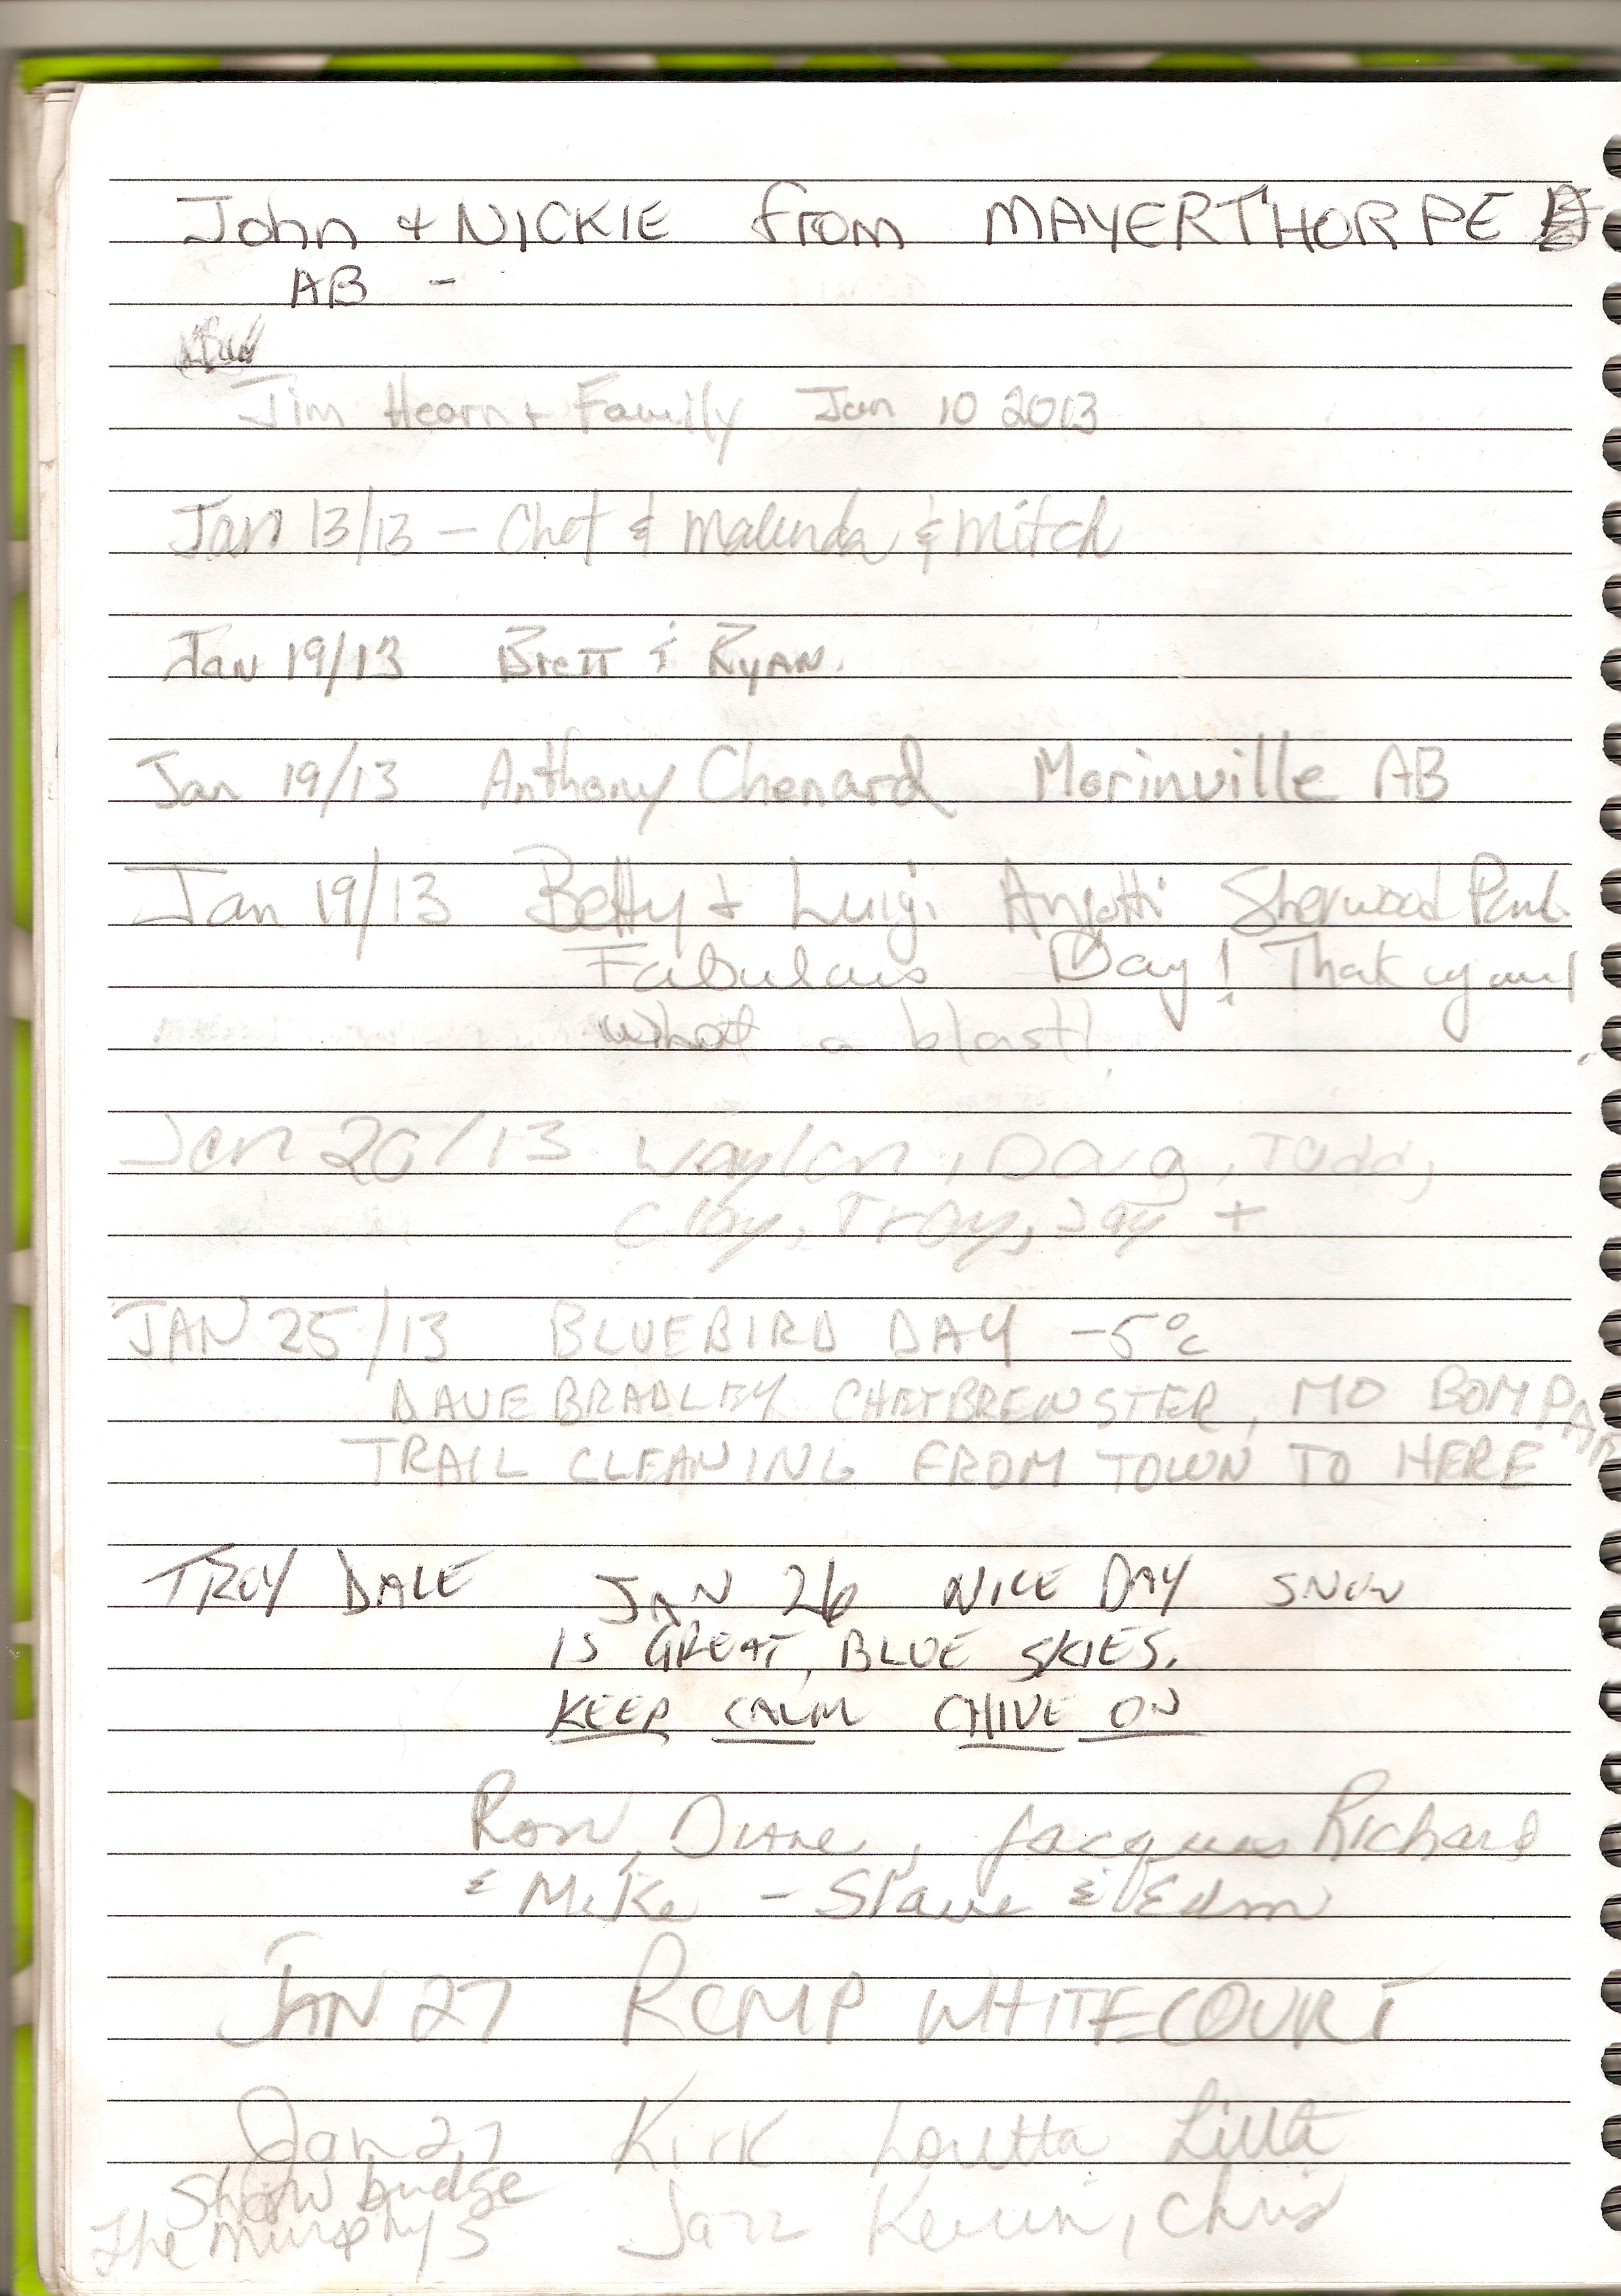 John + NICKIE from MAYERTHORPE
AB -
Jim Hearn + Family Jan 10 2013
Jan 13/13 - Chet & Malinda & Mitch
Jan 19/13 Brett & Ryan.
Jan 19/13 Anthony Chenard Morinville AB
Jan 19/13 Betty + Luigi Angotti Sherwood Park
Fabulous Day! Thank you!
What a blast!
Jan 20/13 Waylon, Doug, Todd,
Clay, Troy, Jay +
JAN 25/13 BLUEBIRD DAY -5°C
DAVE BRADLEY CHET BREWSTER, MO BOMPAR
TRAIL CLEANING FROM TOWN TO HERE
TROY DALE JAN 26 NICE DAY SNOW
IS GREAT, BLUE SKIES.
KEEP CALM CHIVE ON
Ron, Diane, Jacques Richard
& Mike - Slave & Edm
JAN 27 RCMP WHITECOURT
Jan 27 Kirk Loretta
Show budge Jazz Kevin, Chris
The Murphy's